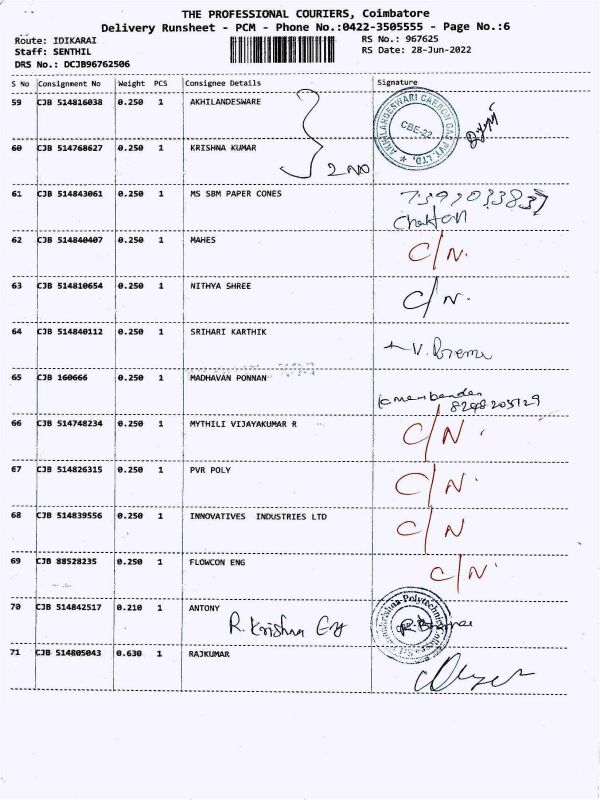 THE PROFESSIONAL COURIERS, Coimbatore
Delivery Runsheet - PCM - Phone No.:0422-3505555 - Page No.:6
Route: IDIKARAI
RS No.: 967625
Staff: SENTHIL
RS Date: 28-Jun-2022
DRS No.: DCJB96762506
S No Consignment No Weight PCS Consignee Details Signature
59 CJB 514816038 0.250 1 AKHILANDESWARE
AKHILANDESWARI CARBON GAS PVT. LTD,
CBE-22
60 CJB 514768627 0.250 1 KRISHNA KUMAR
2 NO
61 CJB 514843061 0.250 1 MS SBM PAPER CONES
62 CJB 514840407 0.250 1 MAHES C/N.
63 CJB 514810654 0.250 1 NITHYA SHREE C/N.
64 CJB 514840112 0.250 1 SRIHARI KARTHIK
V. Prema
65 CJB 160666 0.250 1 MADHAVAN PONNAN
66 CJB 514748234 0.250 1 MYTHILI VIJAYAKUMAR R C/N.
67 CJB 514826315 0.250 1 PVR POLY C/N.
68 CJB 514839556 0.250 1 INNOVATIVES INDUSTRIES LTD C/N
69 CJB 88528235 0.250 1 FLOWCON ENG C/N
70 CJB 514842517 0.210 1 ANTONY
R. Krishna
71 CJB 514805043 0.630 1 RAJKUMAR